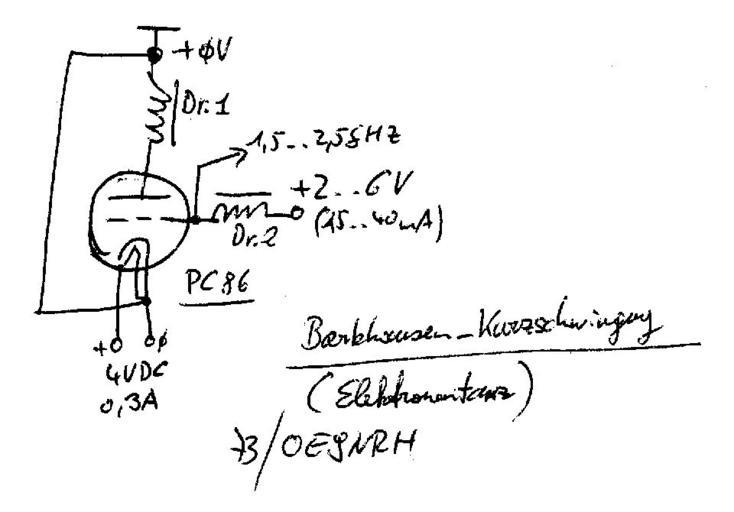 +ØV
Dr.1
1,5...2,5GHZ
+2...6V
(15...40mA)
Dr.2
PC86
+ Ø
4VDC
0,3A
Barkhausen-Kurzschwingung
(Elektronentanz)
73/OE9NRH